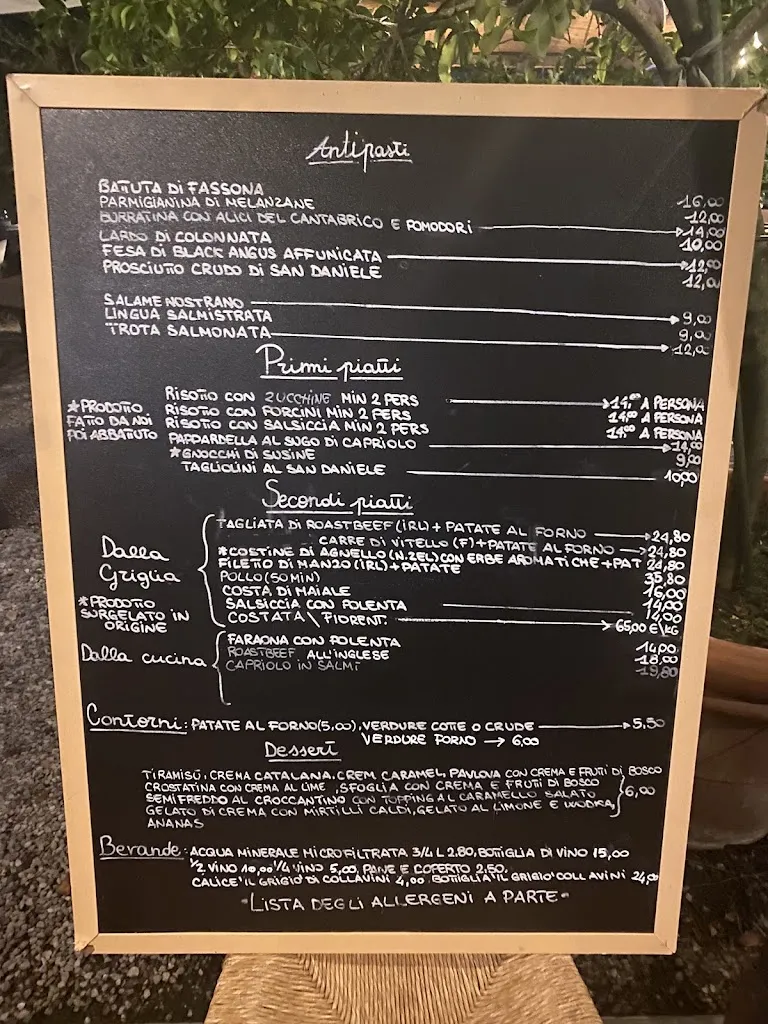 Antipasti
BATTUTA DI FASSONA 16,00
PARMIGIANINA DI MELANZANE 12,00
BURRATINA CON ALICI DEL CANTABRICO E POMODORI 14,00
LARDO DI COLONNATA 10,00
FESA DI BLACK ANGUS AFFUNICATA 12,00
PROSCIUTTO CRUDO DI SAN DANIELE 12,00
SALAME NOSTRANO 9,00
LINGUA SALMISTRATA 9,00
TROTA SALMONATA 12,00
Primi piatti
RISOTTO CON ZUCCHINE MIN 2 PERS 14,00 A PERSONA
RISOTTO CON PORCINI MIN 2 PERS 14,00 A PERSONA
RISOTTO CON SALSICCIA MIN 2 PERS 14,00 A PERSONA
*PRODOTTO
FATTO DA NOI
POI ABBATTUTO
PAPPARDELLA AL SUGO DI CAPRIOLO 14,00
*GNOCCHI DI SUSINE 9,00
TAGLIOLINI AL SAN DANIELE 10,00
Secondi piatti
Dalla
Griglia
TAGLIATA DI ROASTBEEF (IRL) + PATATE AL FORNO 24,80
CARRE DI VITELLO (F) + PATATE AL FORNO 24,80
*COSTINE DI AGNELLO (N.ZEL) CON ERBE AROMATICHE + PAT 24,80
FILETTO DI MANZO (IRL) + PATATE 35,80
POLLO (50 MIN) 16,00
COSTA DI MAIALE 14,00
SALSICCIA CON POLENTA 14,00
COSTATA \ FIORENT. 65,00 €\KG
*PRODOTTO
SURGELATO IN
ORIGINE
Dalla cucina
FARAONA CON POLENTA 14,00
ROASTBEEF ALL'INGLESE 18,00
CAPRIOLO IN SALMI' 19,80
Contorni: PATATE AL FORNO (5,00), VERDURE COTTE O CRUDE 5,50
VERDURE FORNO → 6,00
Dessert
TIRAMISÙ, CREMA CATALANA, CREM CARAMEL, PAVLOVA CON CREMA E FRUTTI DI BOSCO
CROSTATINA CON CREMA AL LIME, SFOGLIA CON CREMA E FRUTTI DI BOSCO
SEMIFREDDO AL CROCCANTINO CON TOPPING AL CARAMELLO SALATO 6,00
GELATO DI CREMA CON MIRTILLI CALDI, GELATO AL LIMONE E WODKA,
ANANAS
Bevande: ACQUA MINERALE MICROFILTRATA 3/4 L 2.80, BOTTIGLIA DI VINO 15,00
1/2 VINO 10,00 1/4 VINO 5,00, PANE E COPERTO 2.50,
CALICE IL GRIGIO DI COLLAVINI 4,00, BOTTIGLIA IL GRIGIO COLLAVINI 24,00
-LISTA DEGLI ALLERGENI A PARTE-